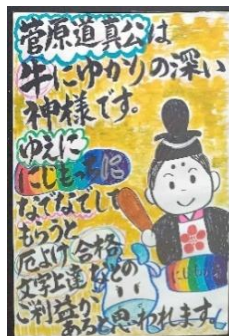 菅原道真公は
牛にゆかりの深い
神様です。
ゆえに
にじもっちに
なでなでして
もらうと
厄よけ 合格
文字上達などの
ご利益が
あると思われます。
にじもっち